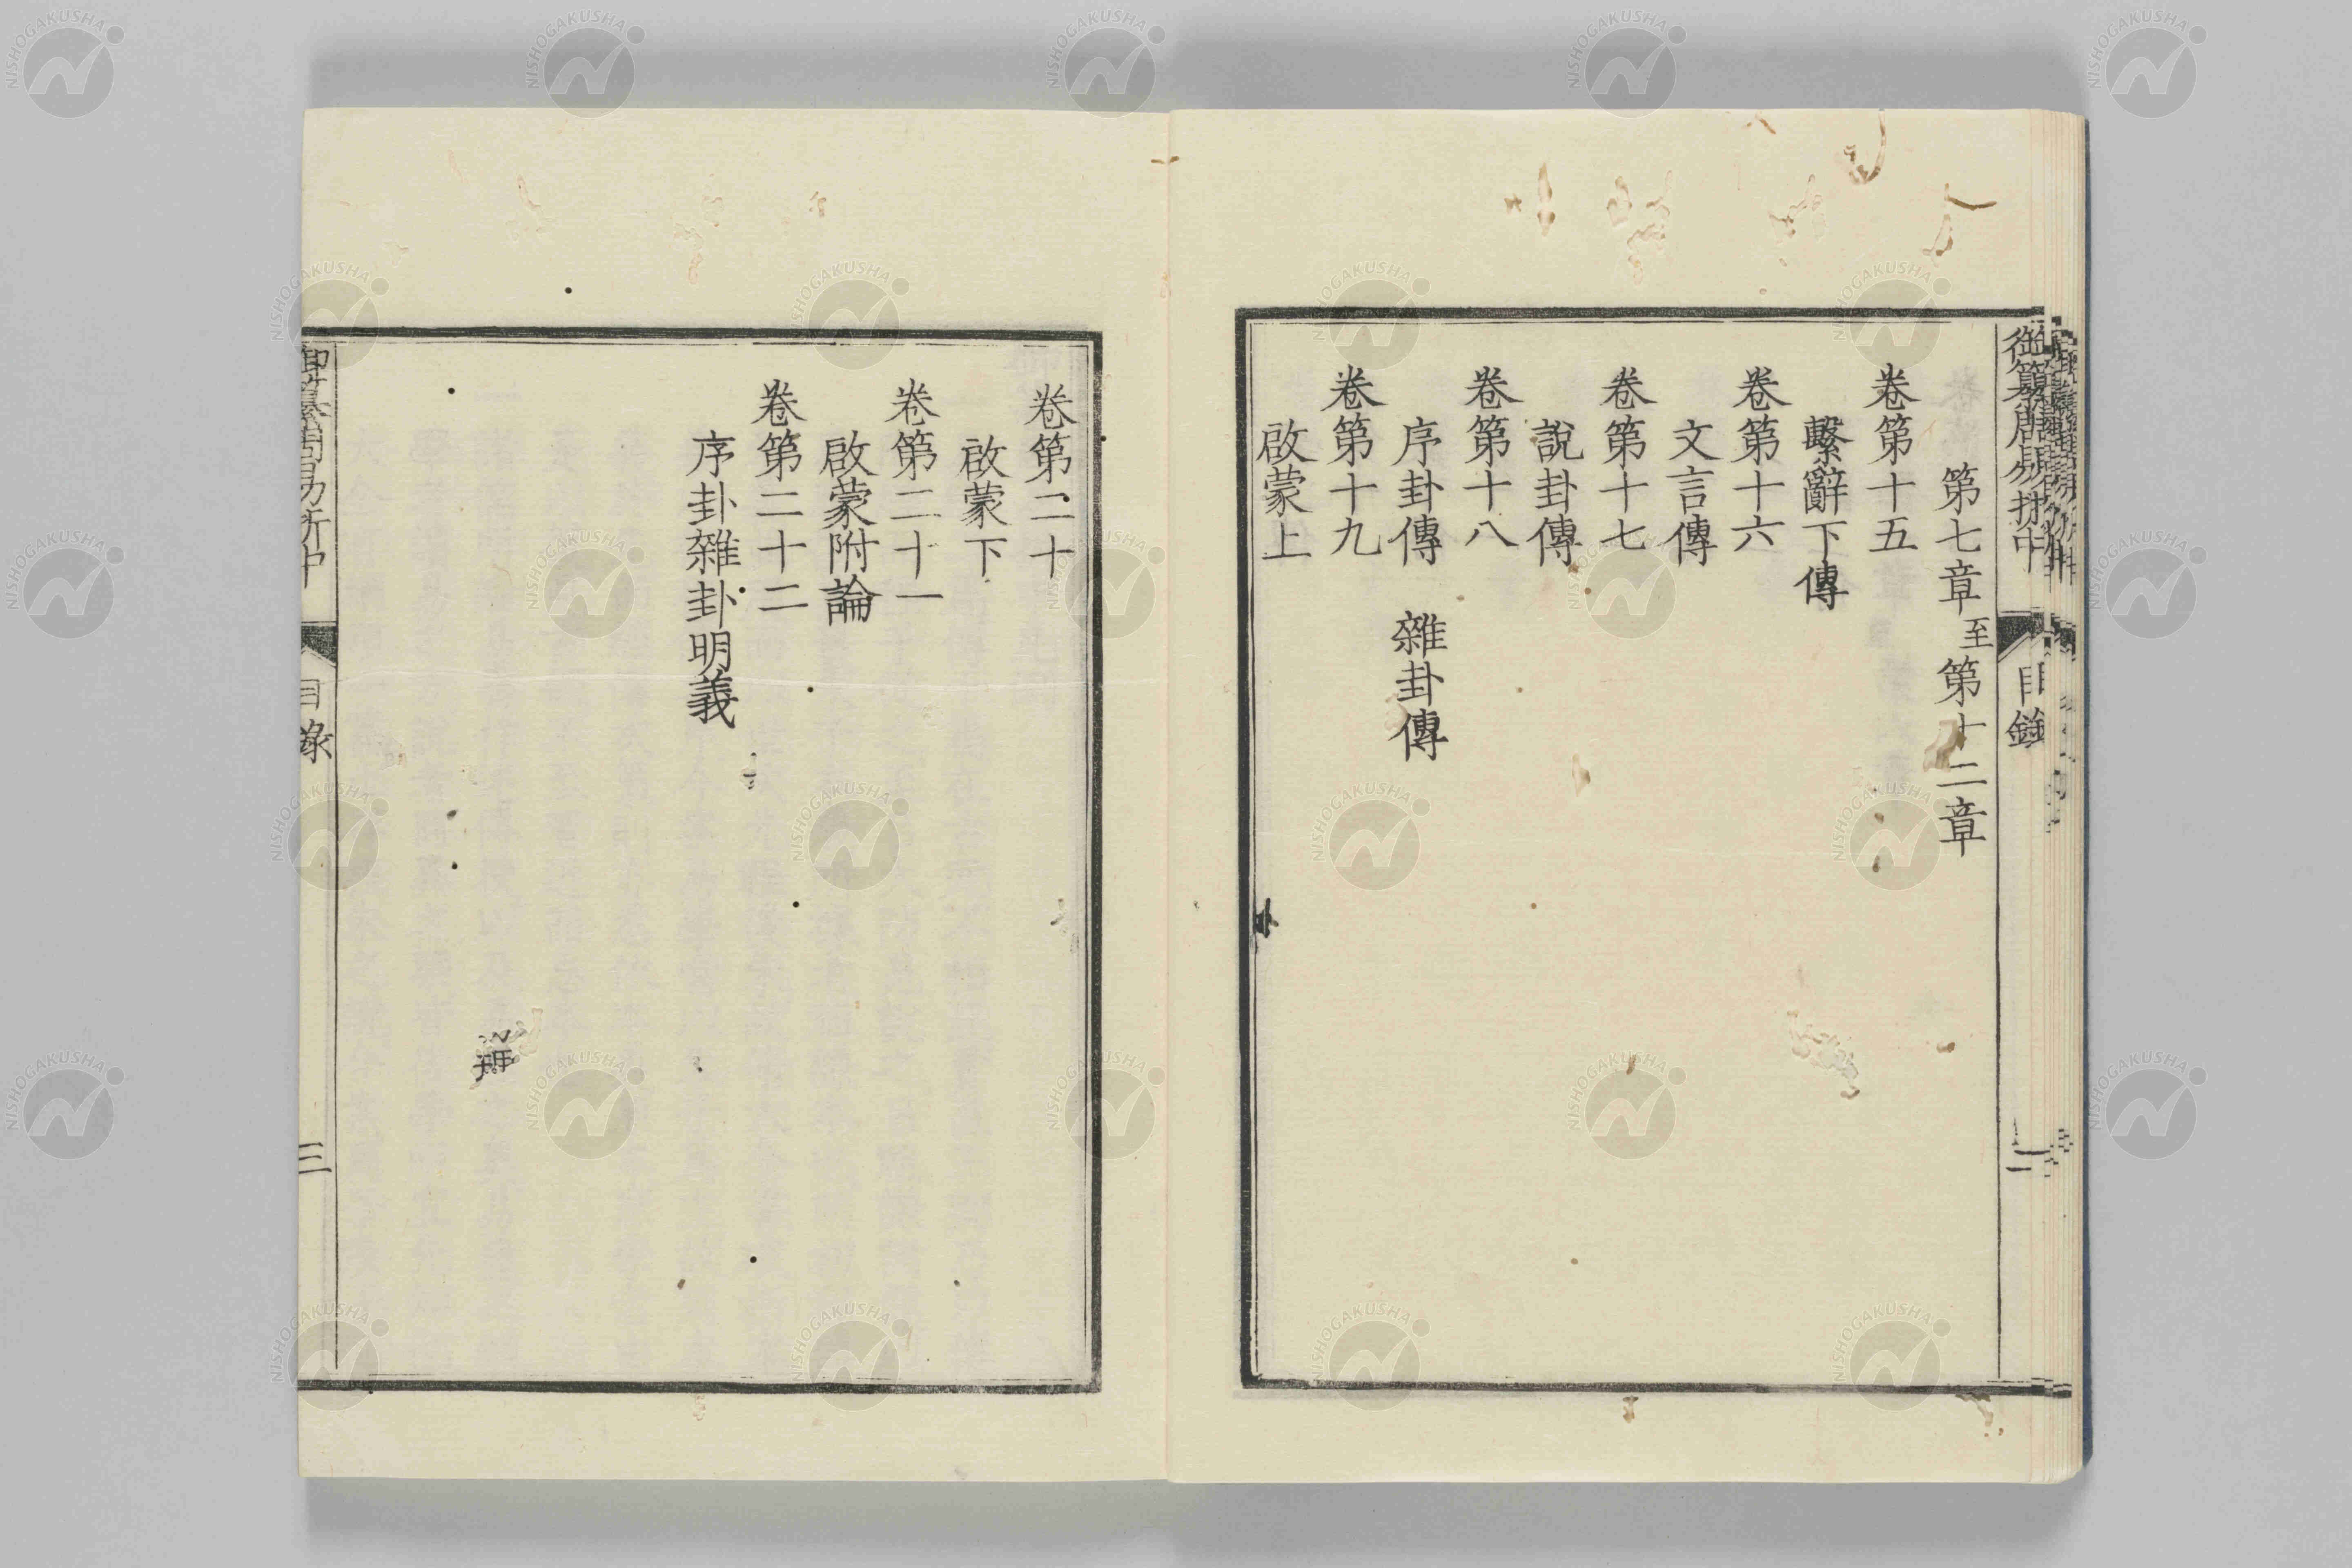 御纂周易折中
目錄
二
第七章至第十二章
卷第十五
繫辭下傳
卷第十六
文言傳
卷第十七
說卦傳
卷第十八
序卦傳 雜卦傳
卷第十九
啟蒙上
卷第二十
啟蒙下
卷第二十一
啟蒙附論
卷第二十二
序卦雜卦明義
御纂周易折中
目錄
三
NISHOGAKUSHA